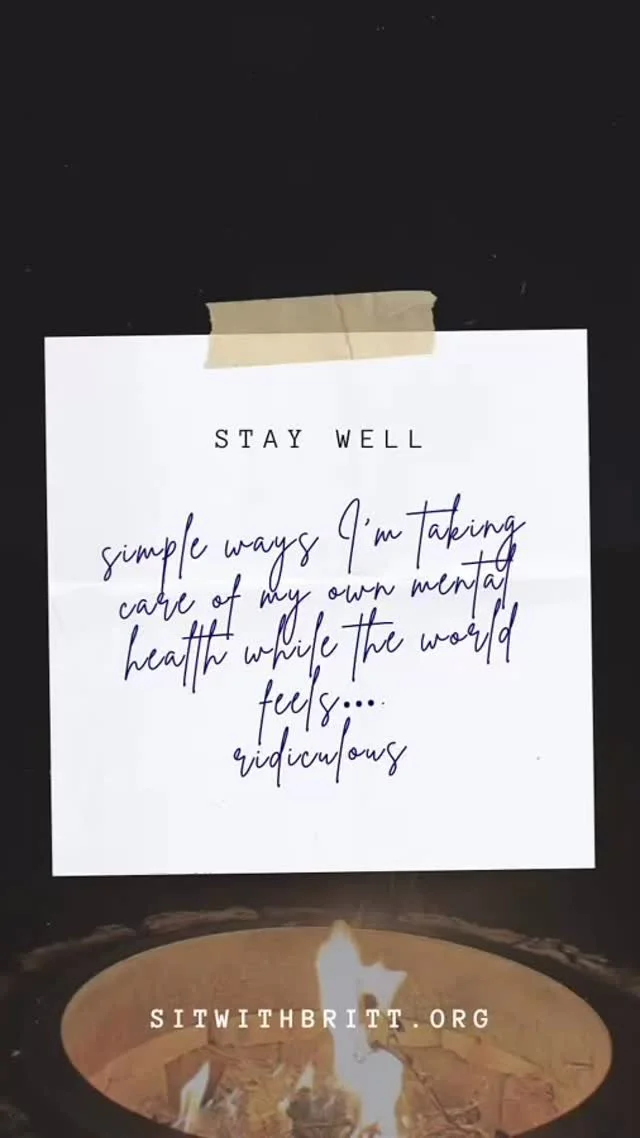 STAY WELL
simple ways I'm taking
care of my own mental
health while the world
feels....
ridiculous
SITWITHBRITT.ORG